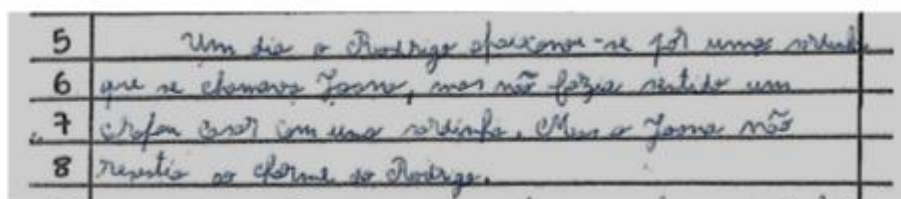 5 Um dia o Rodrigo apaixonou-se por uma sardinha
6 que se chamava Joana, mas não fazia sentido um
7 casar com uma sardinha. Mas a Joana não
8 resistia ao charme do Rodrigo.